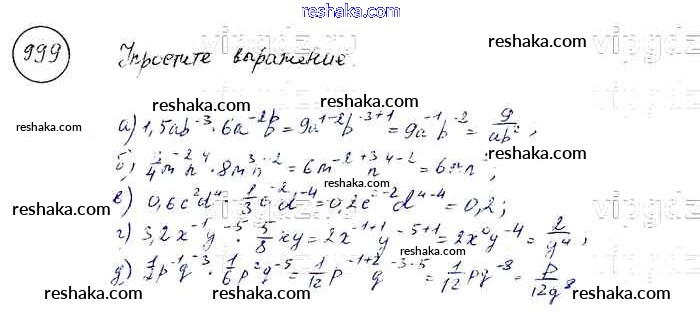 reshaka.com
999 Упростите выражение
vipgdz.ru
vipgdz
reshaka.com reshaka.com reshaka.com
а) 1,5ab⁻³ · 6a⁻²b = 9a¹⁻²b⁻³⁺¹ = 9a⁻¹b⁻² = 9/ab²;
б) 3/4 m⁻²n⁴ · 8m³n⁻² = 6m⁻²⁺³n⁴⁻² = 6mn²;
reshaka.com reshaka.com reshaka.com
в) 0,6c²d⁴ · 1/3 c⁻²d⁻⁴ = 0,2c²⁻²d⁴⁻⁴ = 0,2;
г) 3,2x⁻¹y⁻⁵ · 5/8 xy = 2x⁻¹⁺¹y⁻⁵⁺¹ = 2x⁰y⁻⁴ = 2/y⁴;
д) 1/2 p⁻¹q⁻³ · 1/6 p²q⁻⁵ = 1/12 p⁻¹⁺²q⁻³⁻⁵ = 1/12 pq⁻⁸ = p/12q⁸
reshaka.com reshaka.com reshaka.com